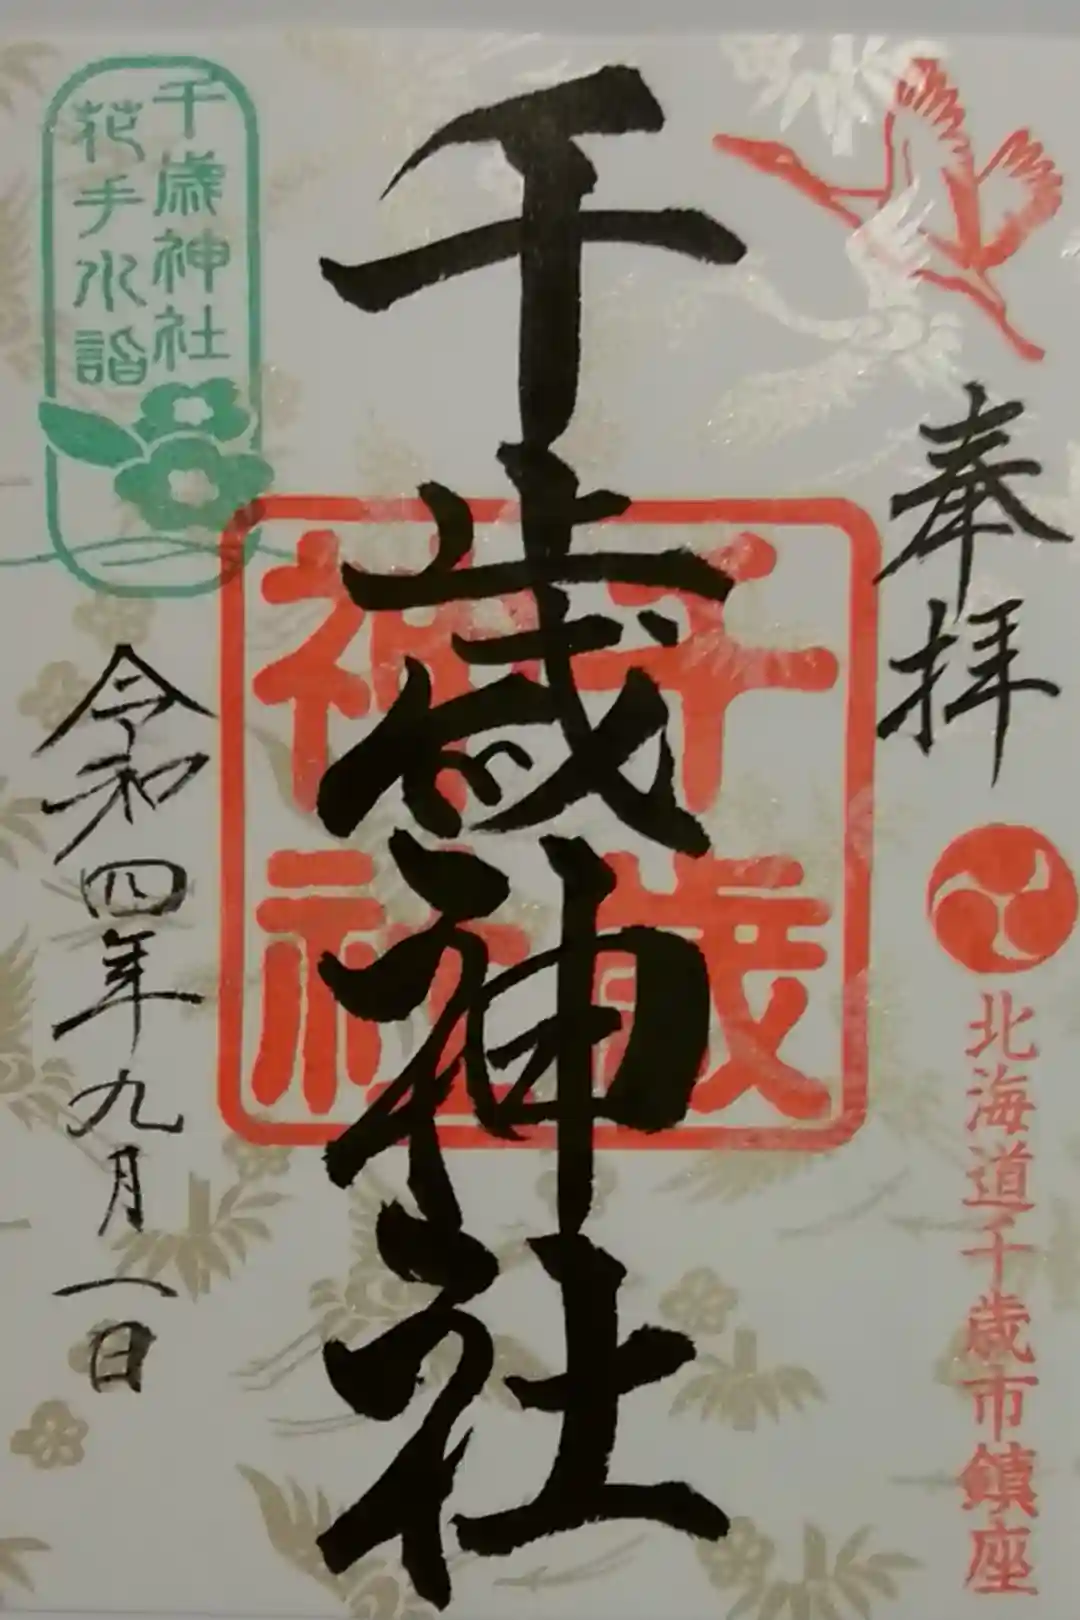 奉拝
北海道千歳市鎮座
千歳神社
千歳
神社
令和四年九月一日
千歳神社
花手水詣